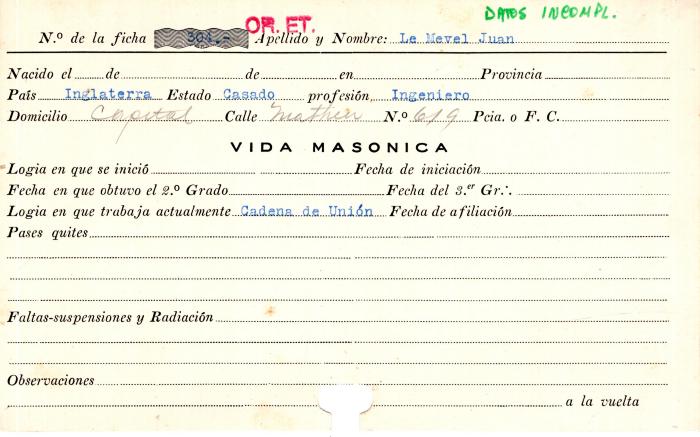 DATOS INCOMPL.
OR. ET.
N.º de la ficha 304.- Apellido y Nombre: Le Mevel Juan
Nacido el de de en Provincia
País Inglaterra Estado Casado profesión Ingeniero
Domicilio Capital Calle Matheu N.º 619 Pcia. o F. C.
VIDA MASONICA
Logia en que se inició Fecha de iniciación
Fecha en que obtuvo el 2.º Grado Fecha del 3.er Gr∴
Logia en que trabaja actualmente Cadena de Unión Fecha de afiliación
Pases quites
Faltas-suspensiones y Radiación
Observaciones
a la vuelta